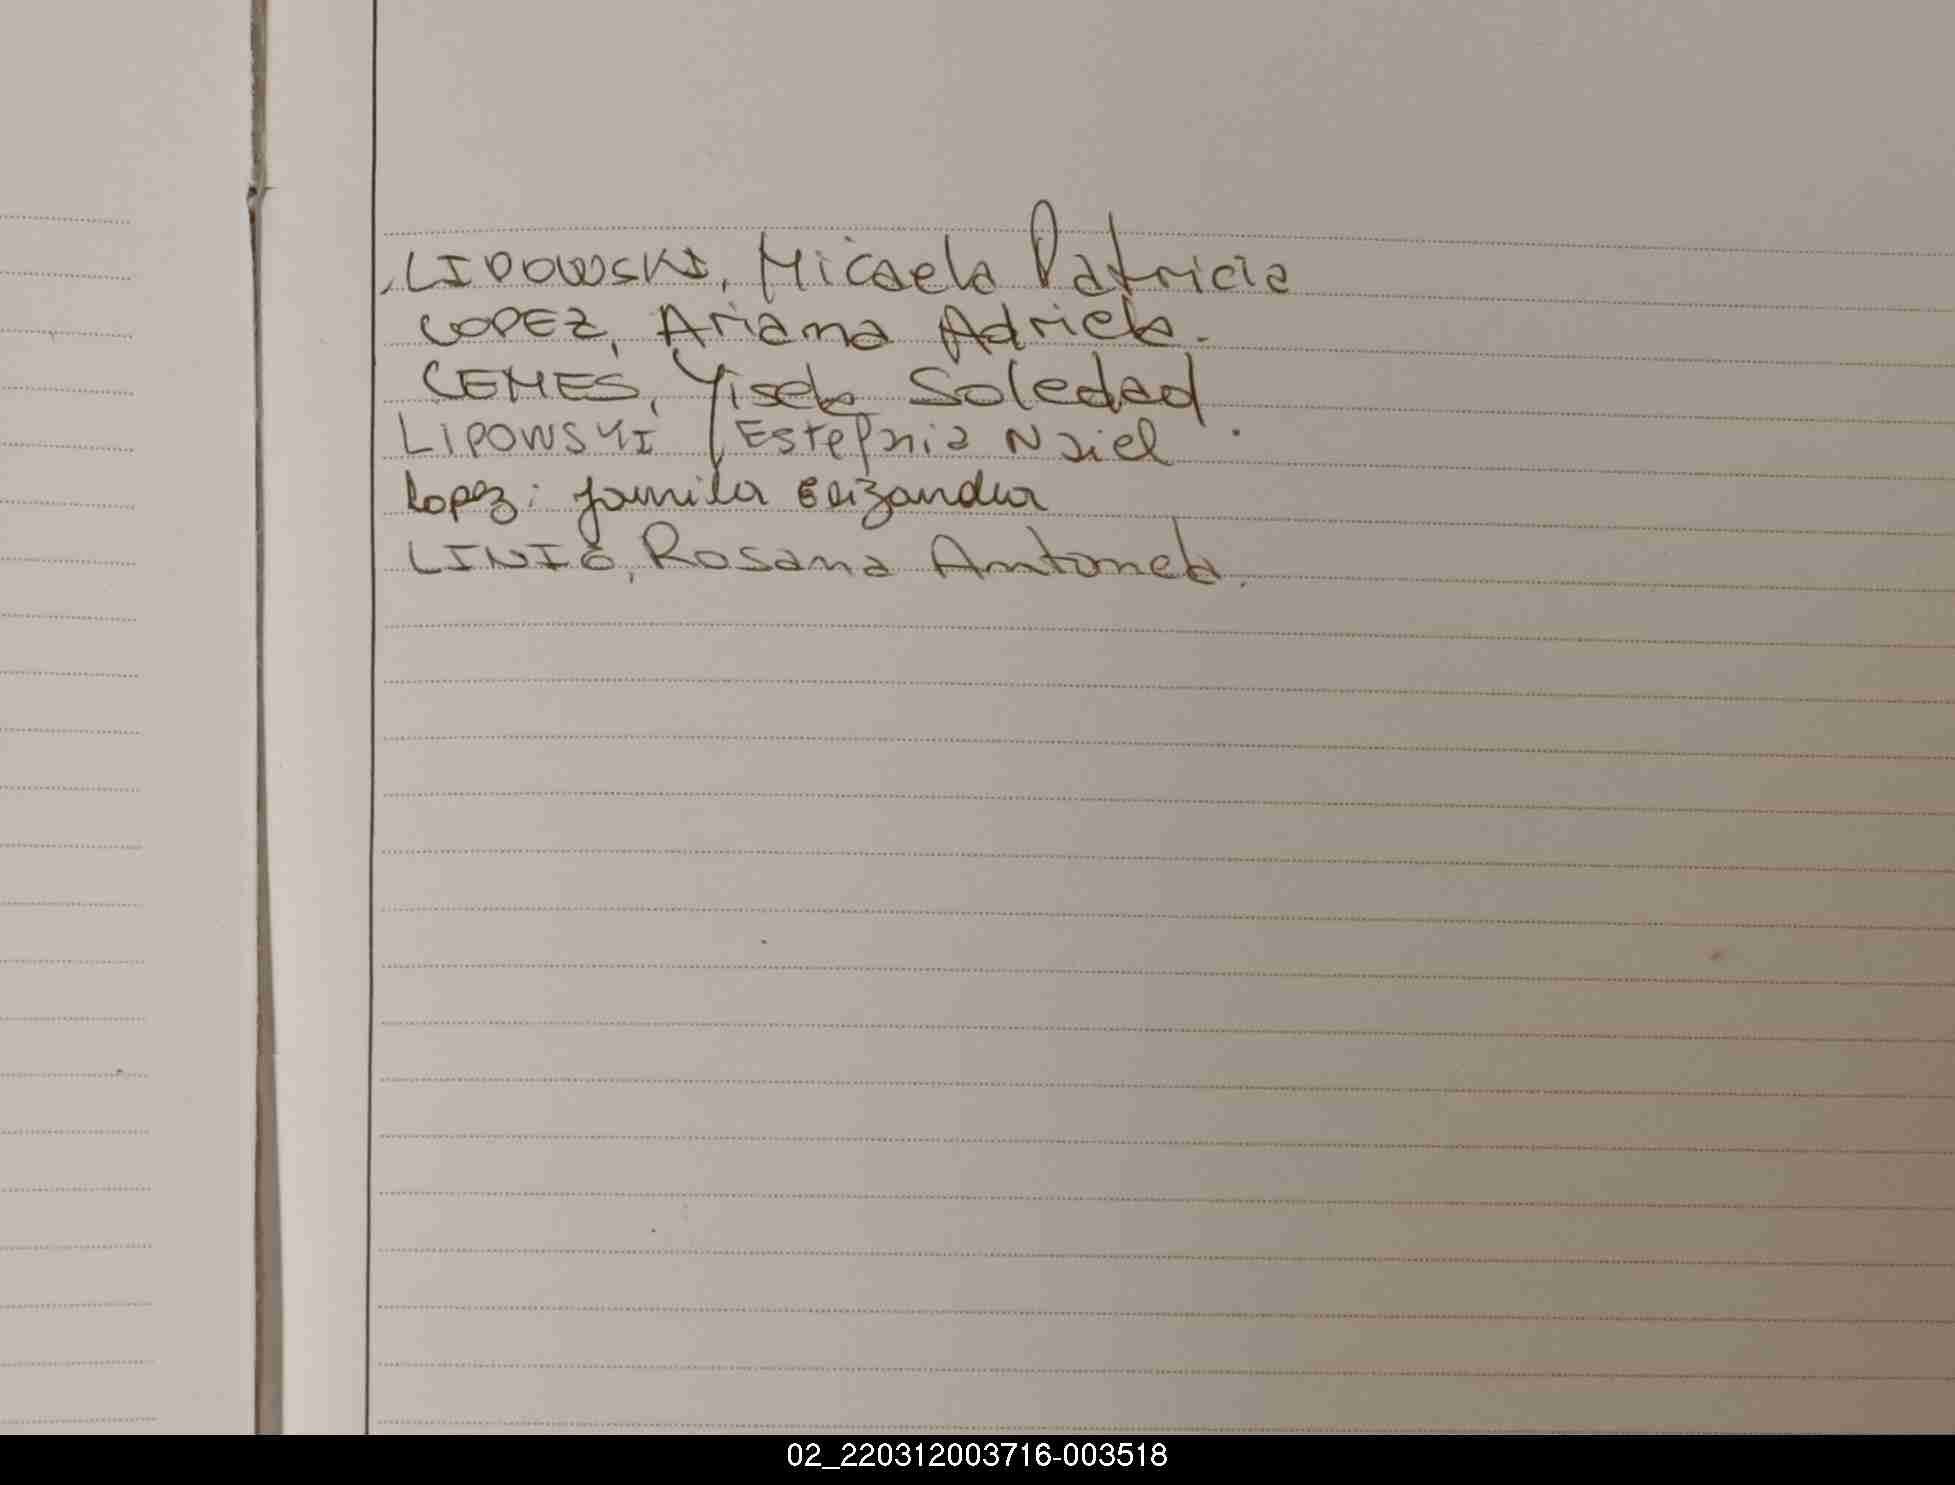 LIPOWSKI, Micaela Patricia
LOPEZ, Ariana Adriela.
LEMES, Yisela Soledad
LIPOWSKI Estefnia Naiel
Lopez: Jamila
LINIO, Rosana Antonela.
02_220312003716-003518